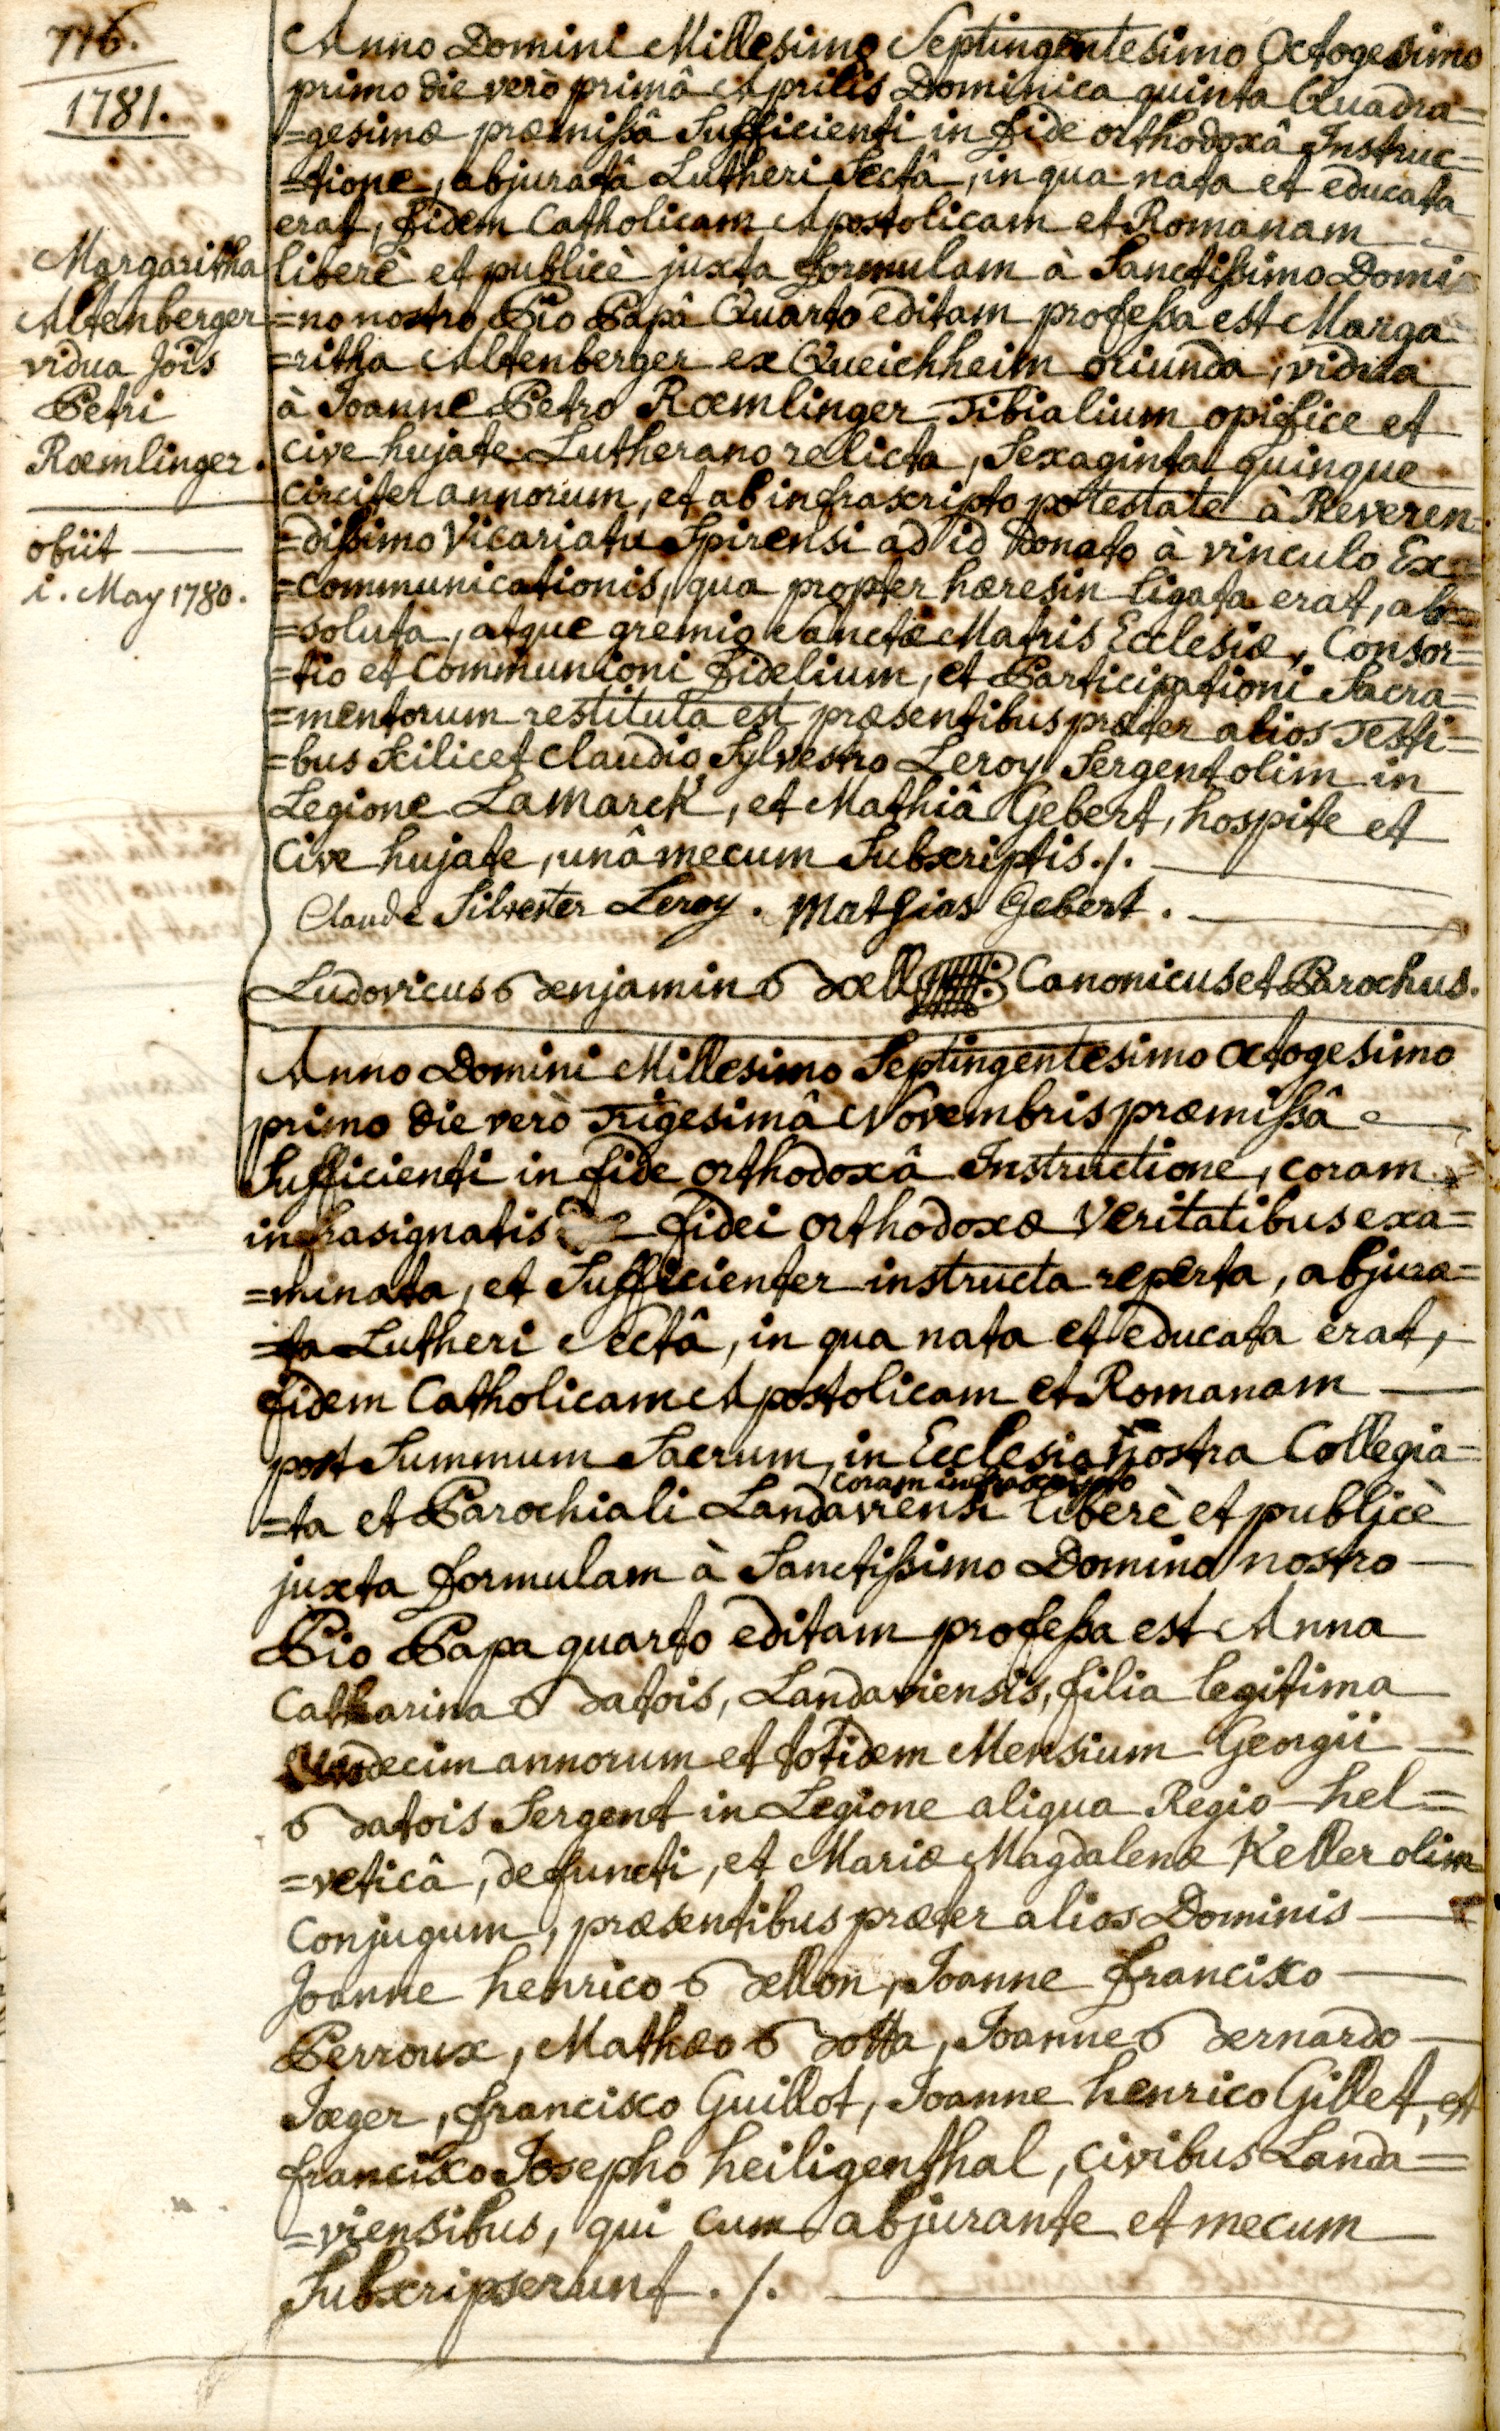 776.
1781.
Margaritha
Altenberger
vidua Jois
Petri
Rœmlinger.
obiit
i. May 1780.
Anno Domini Millesimo Septingentesimo Octogesimo
primo die verò primâ Aprilis Dominica quinta Quadra=
=gesimæ præmißâ Sufficienti in fide orthodoxâ Instruc=
=tione, abjuratâ Lutheri Sectâ, in qua nata et educata
erat, fidem Catholicam Apostolicam et Romanam
liberè et publicè juxta formulam à Sanctißimo Domi=
=no nostro Pio Papâ Quarto editam profeßa est Marga=
=ritha Altenberger ex Queichheim oriunda, vidua
à Joanne Petro Rœmlinger Tibialium opifice et
cive hujate Lutherano relicta, Sexaginta quinque
circiter annorum, et ab infrascripto potestate à Reveren=
=dißimo Vicariatu Spirensi ad id donato à vinculo Ex=
=communicationis, qua propter hæresin ligata erat, ab=
=soluta, atque gremio Sanctæ Matris Ecclesiæ, Consor=
=tio et Communioni fidelium, et Participationi Sacra=
=mentorum restituta est præsentibus præter alios Testi=
=bus Scilicet Claudio Sylvestro Leroy Sergent olim in
Legione Lamarck, et Mathiâ Gebert, hospite et
Cive hujate, unâ mecum Subscriptis ./.
Claude Silvester Leroy. Mathias Gebert.
Ludovicus Benjamin Bœll Canonicus et Parochus.
Anno Domini Millesimo Septingentesimo Octogesimo
primo die verò Trigesimâ Novembris præmißâ
Sufficienti in fide orthodoxâ Instructione, coram
infrasignatis fidei orthodoxæ Veritatibus exa=
=minata, et Sufficienter instructa reperta, abjura=
=ta Lutheri Sectâ, in qua nata et educata erat,
fidem Catholicam Apostolicam et Romanam
post Summum Sacrum, in Ecclesia nostra Collegia=
coram infrascripto
=ta et Parochiali Landaviensi liberè et publicè
juxta formulam à Sanctißimo Domino nostro
Pio Papa quarto editam profeßa est Anna
Catharina Batois, Landaviensis, filia legitima
decim annorum et totidem Mensium Georgii
Batois Sergent in Legione aliqua Regio-hel=
=veticâ, defuncti, et Mariæ Magdalenæ Keller olim
Conjugum, præsentibus præter alios Dominis
Joanne henrico Bellon, Joanne francisco
Perroux, Mathæo Botta, Joanne Bernardo
Jæger, francisco Guillot, Joanne henrico Gillet, et
francisco Josepho heiligenthal, civibus Landa=
=viensibus, qui cum abjurante et mecum
Subscripserunt ./.